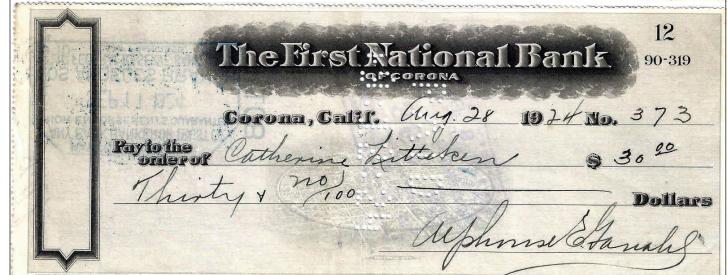 12
The First National Bank 90-319
OF CORONA
Corona, Calif. Aug. 28 1924 No. 373
Pay to the
order of Catherine Litteken $ 30 00
Thirty & no/100 Dollars
Alphonse E. Ganahl